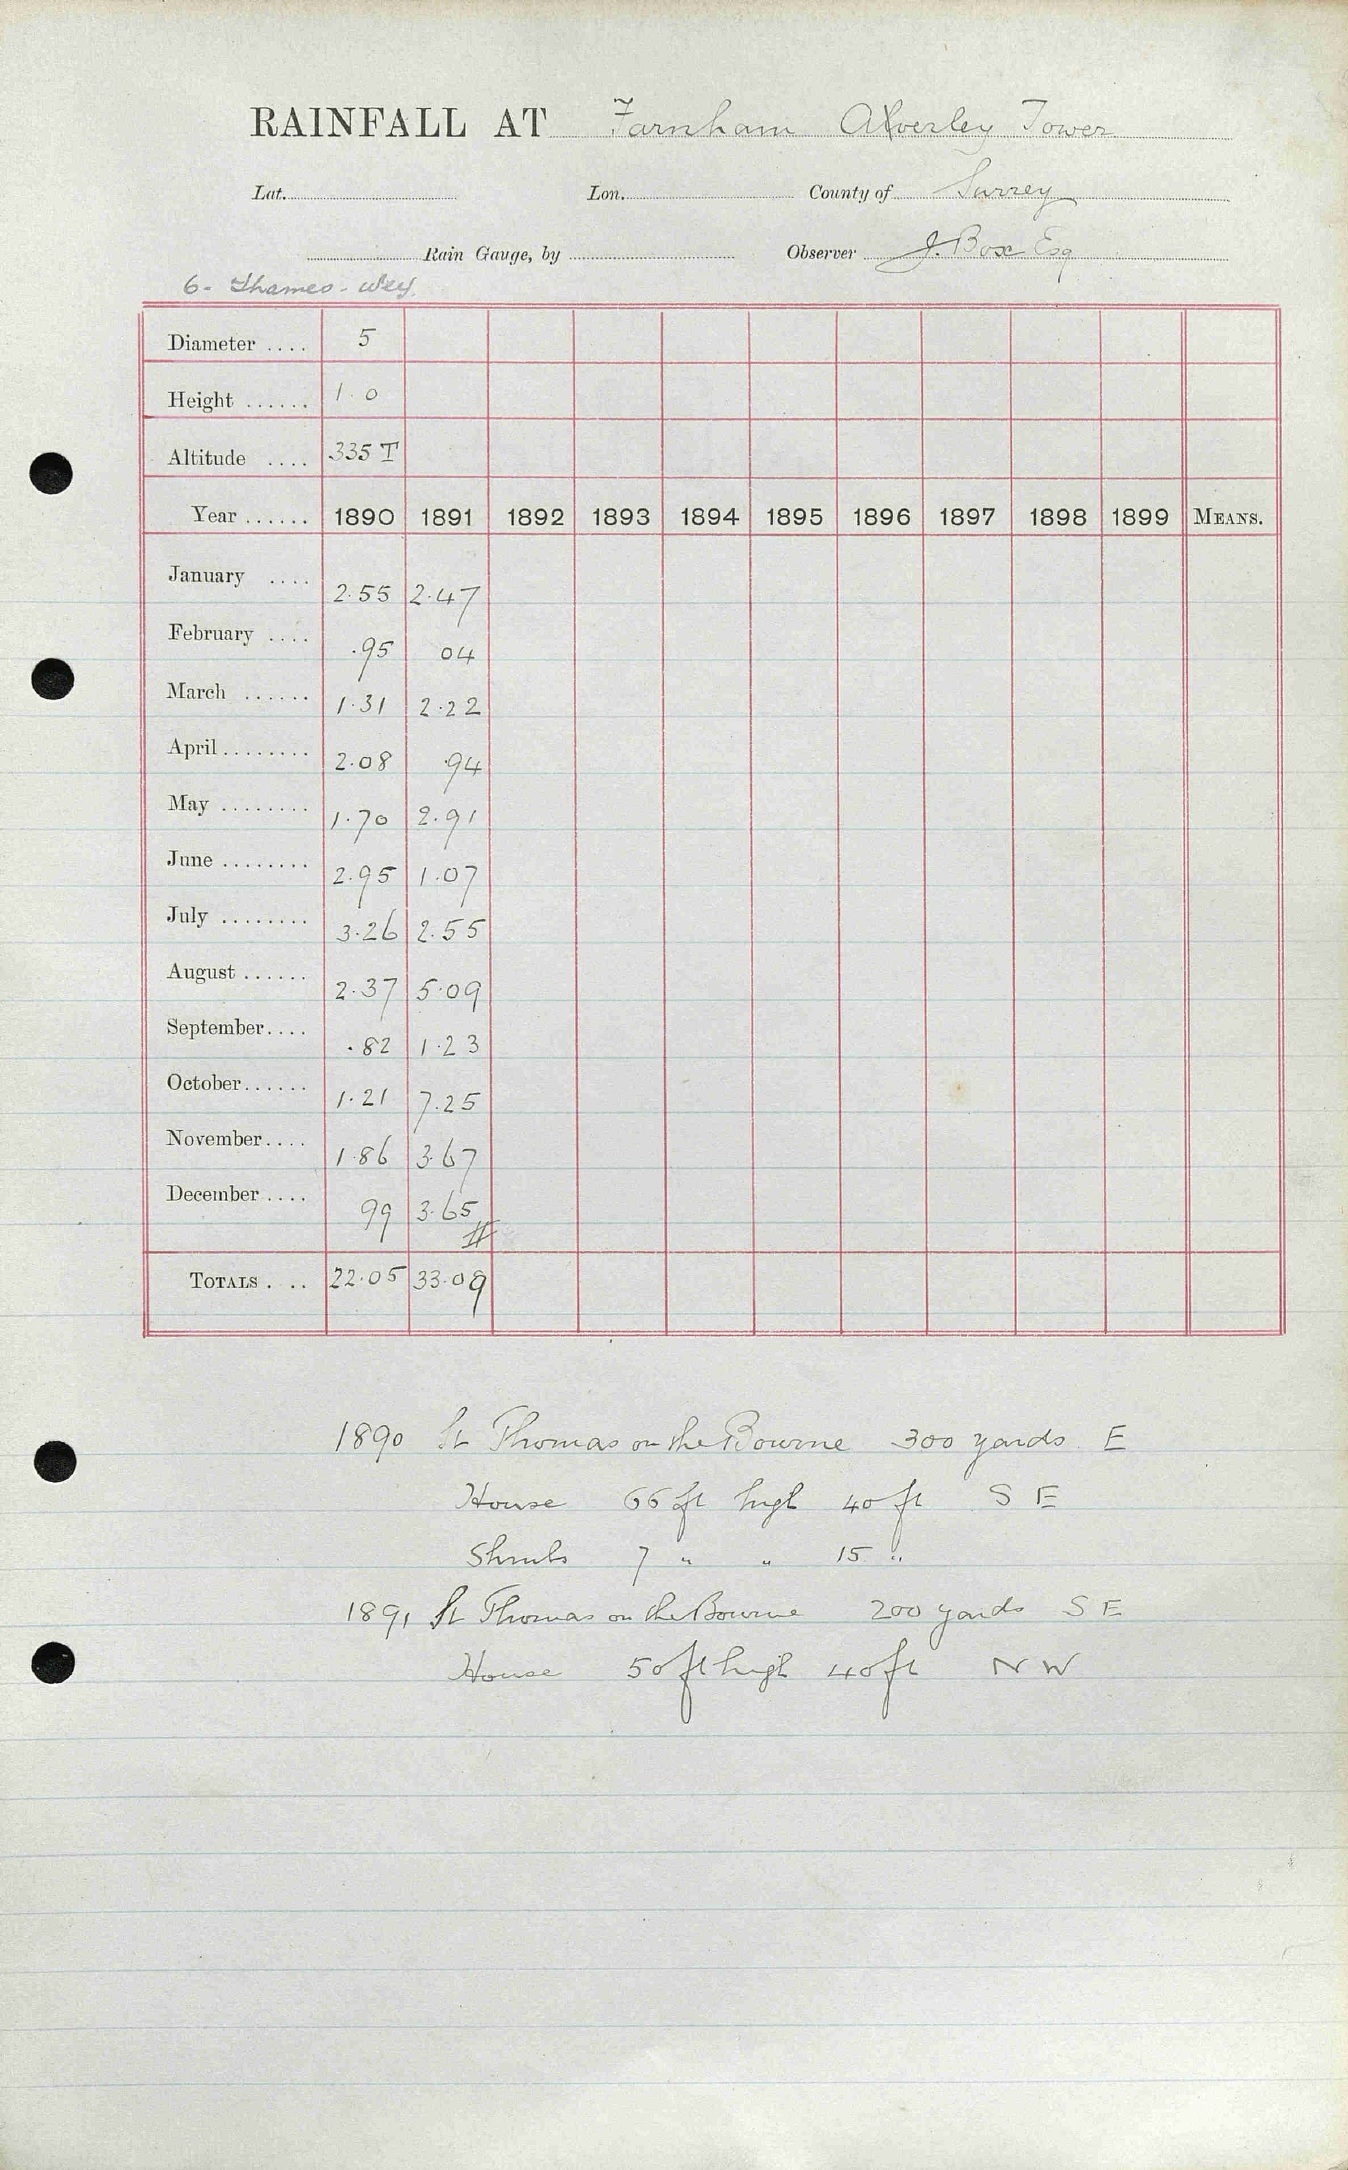 RAINFALL AT Farnham Alverley Tower
Lat. Lon. County of Surrey
Rain Gauge, by Observer J. Box Esq
6 - Thames - Wey.
Diameter .... 5
Height ...... 1.0
Altitude .... 335 T
Year ...... 1890 1891 1892 1893 1894 1895 1896 1897 1898 1899 MEANS.
January .... 2.55 2.47
February .... .95 04
March ...... 1.31 2.22
April ........ 2.08 .94
May ........ 1.70 2.91
June ........ 2.95 1.07
July ........ 3.26 2.55
August ...... 2.37 5.09
September.... .82 1.23
October...... 1.21 7.25
November.... 1.86 3.67
December .... 99 3.65
TOTALS . .. 22.05 33.09
1890 St Thomas on the Bourne 300 yards E
House 66 ft high 40 ft S E
Shrubs 7 " " 15 "
1891 St Thomas on the Bourne 200 yards S E
House 50 ft high 40 ft N W